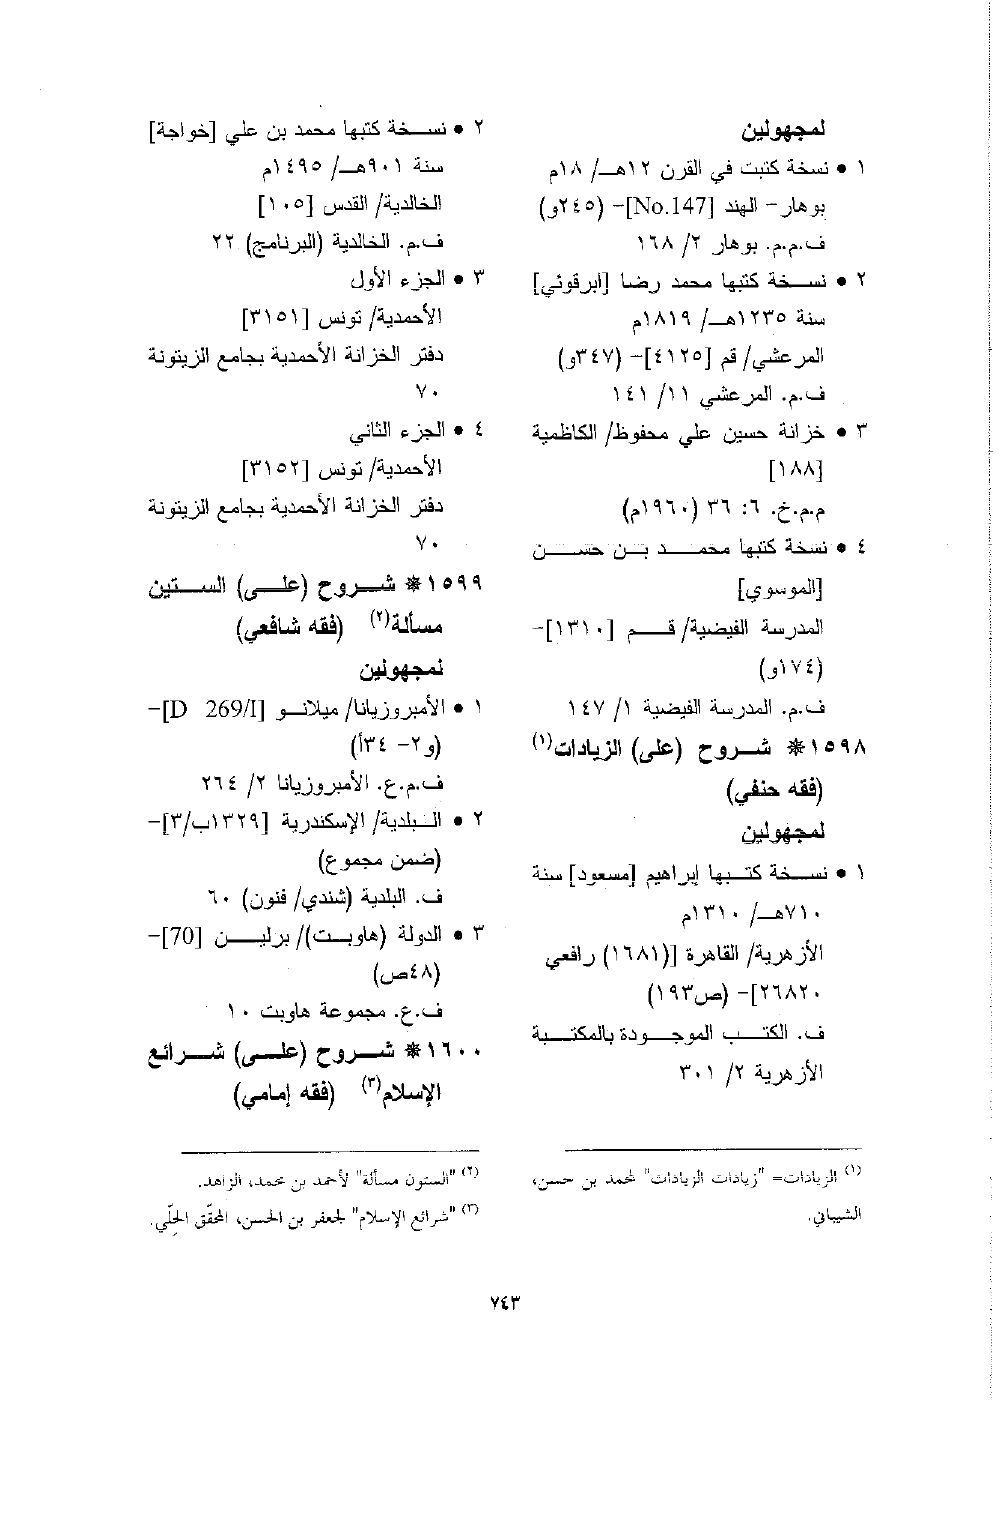 لمجهولين
١ • نسخة كتبت في القرن ١٢هـ/ ١٨م
بوهار- الهند [No.147]- (٢٤٥و)
ف.م.م. بوهار ٢/ ١٦٨
٢ • نسخة كتبها محمد رضا [أبرقوئي]
سنة ١٢٣٥هـ/ ١٨١٩م
المرعشي/ قم [٤١٢٥]- (٣٤٧و)
ف.م. المرعشي ١١/ ١٤١
٣ • خزانة حسين علي محفوظ/ الكاظمية
[١٨٨]
م.م.خ. ٦: ٣٦ (١٩٦٠م)
٤ • نسخة كتبها محمد بن حسن
[الموسوي]
المدرسة الفيضية/ قم [١٣١٠]-
(١٧٤و)
ف.م. المدرسة الفيضية ١/ ١٤٧
١٥٩٨* شروح (على) الزيادات(١)
(فقه حنفي)
لمجهولين
١ • نسخة كتبها إبراهيم [مسعود] سنة
٧١٠هـ/ ١٣١٠م
الأزهرية/ القاهرة [(١٦٨١) رافعي
٢٦٨٢٠]- (ص١٩٣)
ف. الكتب الموجودة بالمكتبة
الأزهرية ٢/ ٣٠١
(١) الزيادات= "زيادات الزيادات" لمحمد بن حسن،
الشيباني.
٢ • نسخة كتبها محمد بن علي [خواجة]
سنة ٩٠١هـ/ ١٤٩٥م
الخالدية/ القدس [١٠٥]
ف.م. الخالدية (البرنامج) ٢٢
٣ • الجزء الأول
الأحمدية/ تونس [٣١٥١]
دفتر الخزانة الأحمدية بجامع الزيتونة
٧٠
٤ • الجزء الثاني
الأحمدية/ تونس [٣١٥٢]
دفتر الخزانة الأحمدية بجامع الزيتونة
٧٠
١٥٩٩* شروح (على) الستين
مسألة(٢) (فقه شافعي)
لمجهولين
١ • الأمبروزيانا/ ميلانو [D 269/I]-
(و٢- ٣٤أ)
ف.م.ع. الأمبروزيانا ٢/ ٢٦٤
٢ • البلدية/ الإسكندرية [١٣٢٩ب/٣]-
(ضمن مجموع)
ف. البلدية (شندي/ فنون) ٦٠
٣ • الدولة (هاوبت)/ برلين [70]-
(٤٨ص)
ف.ع. مجموعة هاوبت ١٠
١٦٠٠* شروح (على) شرائع
الإسلام(٣) (فقه إمامي)
(٢) "الستون مسألة" لأحمد بن محمد، الزاهد.
(٣) "شرائع الإسلام" لجعفر بن الحسن، المحقّق الحلّي.
٧٤٣